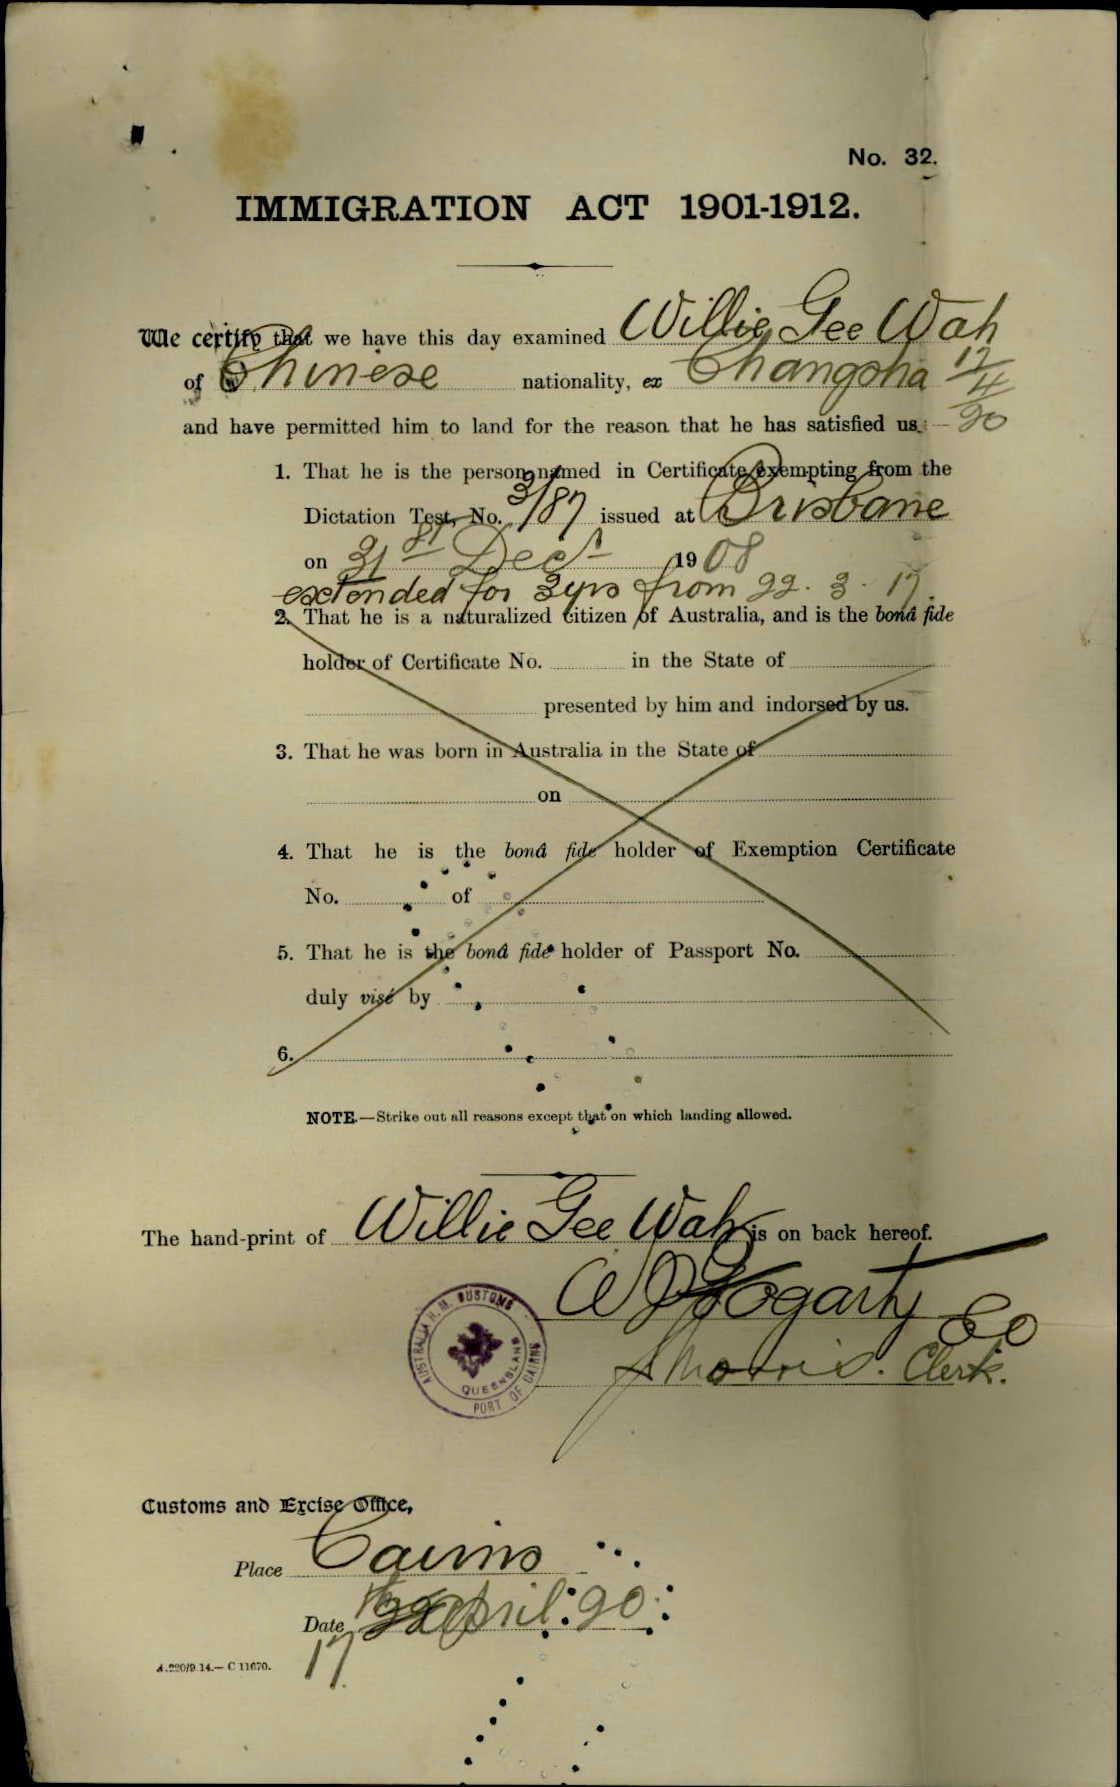 No. 32.
IMMIGRATION ACT 1901-1912.
We certify that we have this day examined Willie Gee Wah
of Chinese nationality, ex Changsha 17/4/20
and have permitted him to land for the reason that he has satisfied us:—
1. That he is the person named in Certificate exempting from the
Dictation Test, No. 3/87 issued at Brisbane
on 31st Decr 1908
extended for 3yrs from 22. 3. 17.
2. That he is a naturalized citizen of Australia, and is the bonâ fide
holder of Certificate No. in the State of
presented by him and indorsed by us.
3. That he was born in Australia in the State of
on
4. That he is the bonâ fide holder of Exemption Certificate
No. of
5. That he is the bonâ fide holder of Passport No.
duly visé by
6.
NOTE.—Strike out all reasons except that on which landing allowed.
The hand-print of Willie Gee Wah is on back hereof.
Fogarty
AUSTRALIA H. M. CUSTOMS
QUEENSLAND
PORT OF CAIRNS
Morris. Clerk.
Customs and Excise Office,
Place Cairns
Date April 20
17
A.220/9.14.—C 11670.